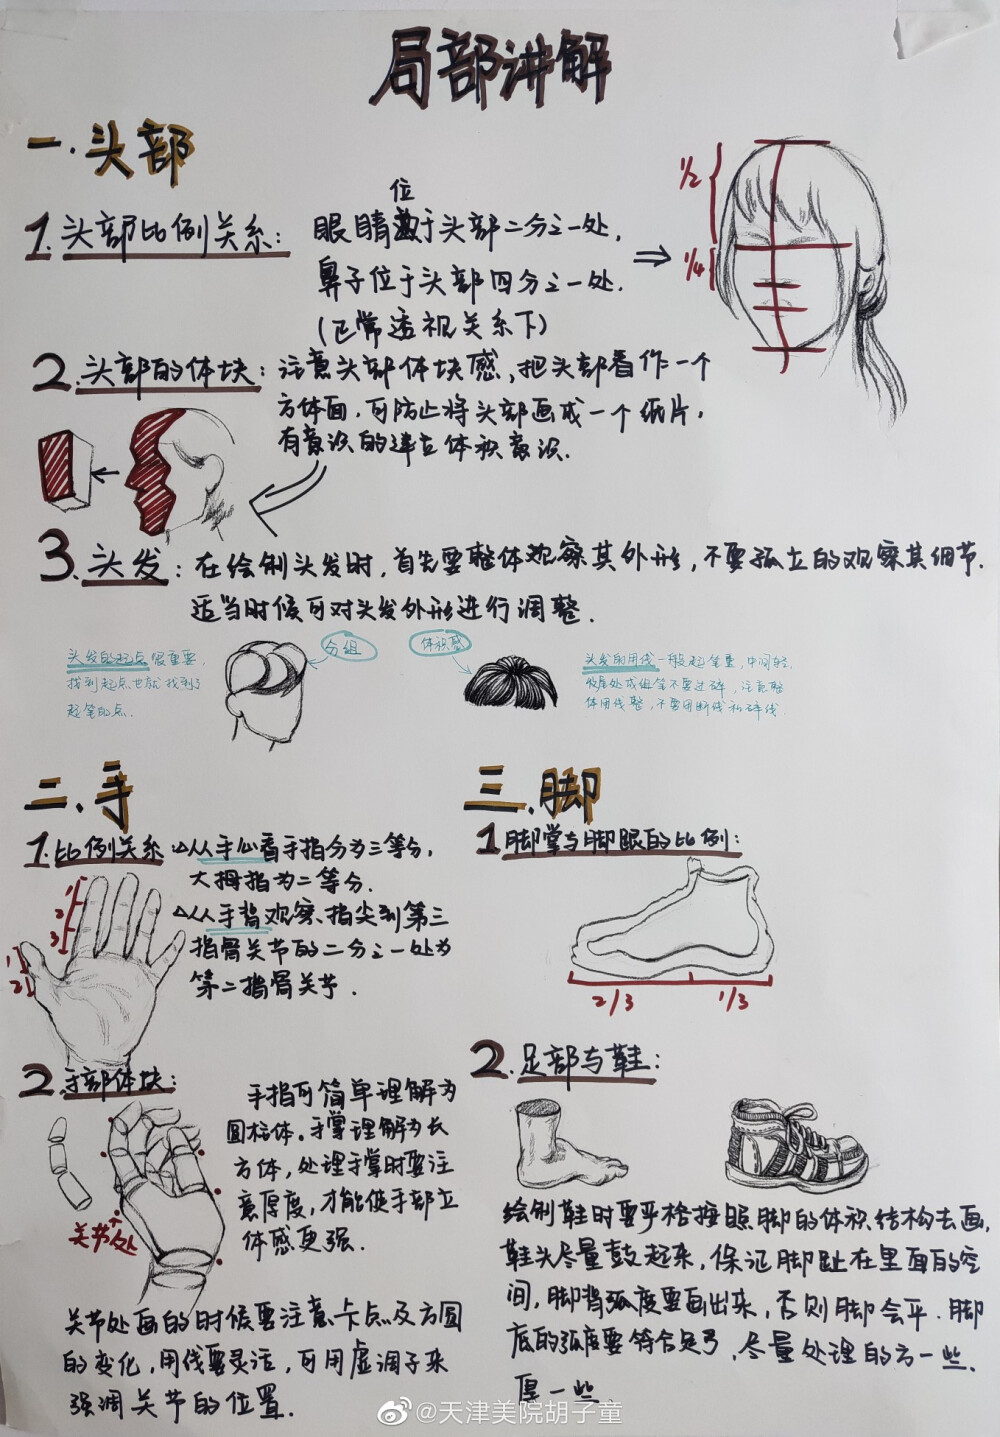 局部讲解
一.头部
1.头部比例关系:
位
眼睛于头部二分之一处,
鼻子位于头部四分之一处.
(正常透视关系下)
1/2
1/4
2.头部的体块:注意头部体块感,把头部看作一个
方体面,可防止将头部画成一个纸片,
有意识的建立体积意识.
3.头发:在绘制头发时,首先要整体观察其外形,不要孤立的观察其细节.
适当时候可对头发外形进行调整.
头发的起点很重要,
找到起点也就找到了
起笔的点.
分组
体积感
头发的用线一般起笔重,中间轻,
发尾处成组笔不要过碎,注意整
体用线整,不要用断线和碎线.
二.手
1.比例关系 △从手心看手指分为三等分,
大拇指为二等分.
△从手背观察、指尖到第三
指骨关节的二分之一处为
第二指骨关节.
1
2
3
1
2
2.手部体块:
手指可简单理解为
圆柱体,手掌理解为长
方体,处理手掌时要注
意厚度,才能使手部立
体感更强.
关节处
关节处画的时候要注意卡点及方圆
的变化,用线要灵活,可用虚调子来
强调关节的位置.
三.脚
1脚掌与脚跟的比例:
2/3
1/3
2.足部与鞋:
绘制鞋时要严格按照脚的体积结构去画,
鞋头尽量鼓起来,保证脚趾在里面的空
间,脚背弧度要画出来,否则脚会平.脚
底的弧度要符合足弓,尽量处理的方一些、
厚一些.
@天津美院胡子童